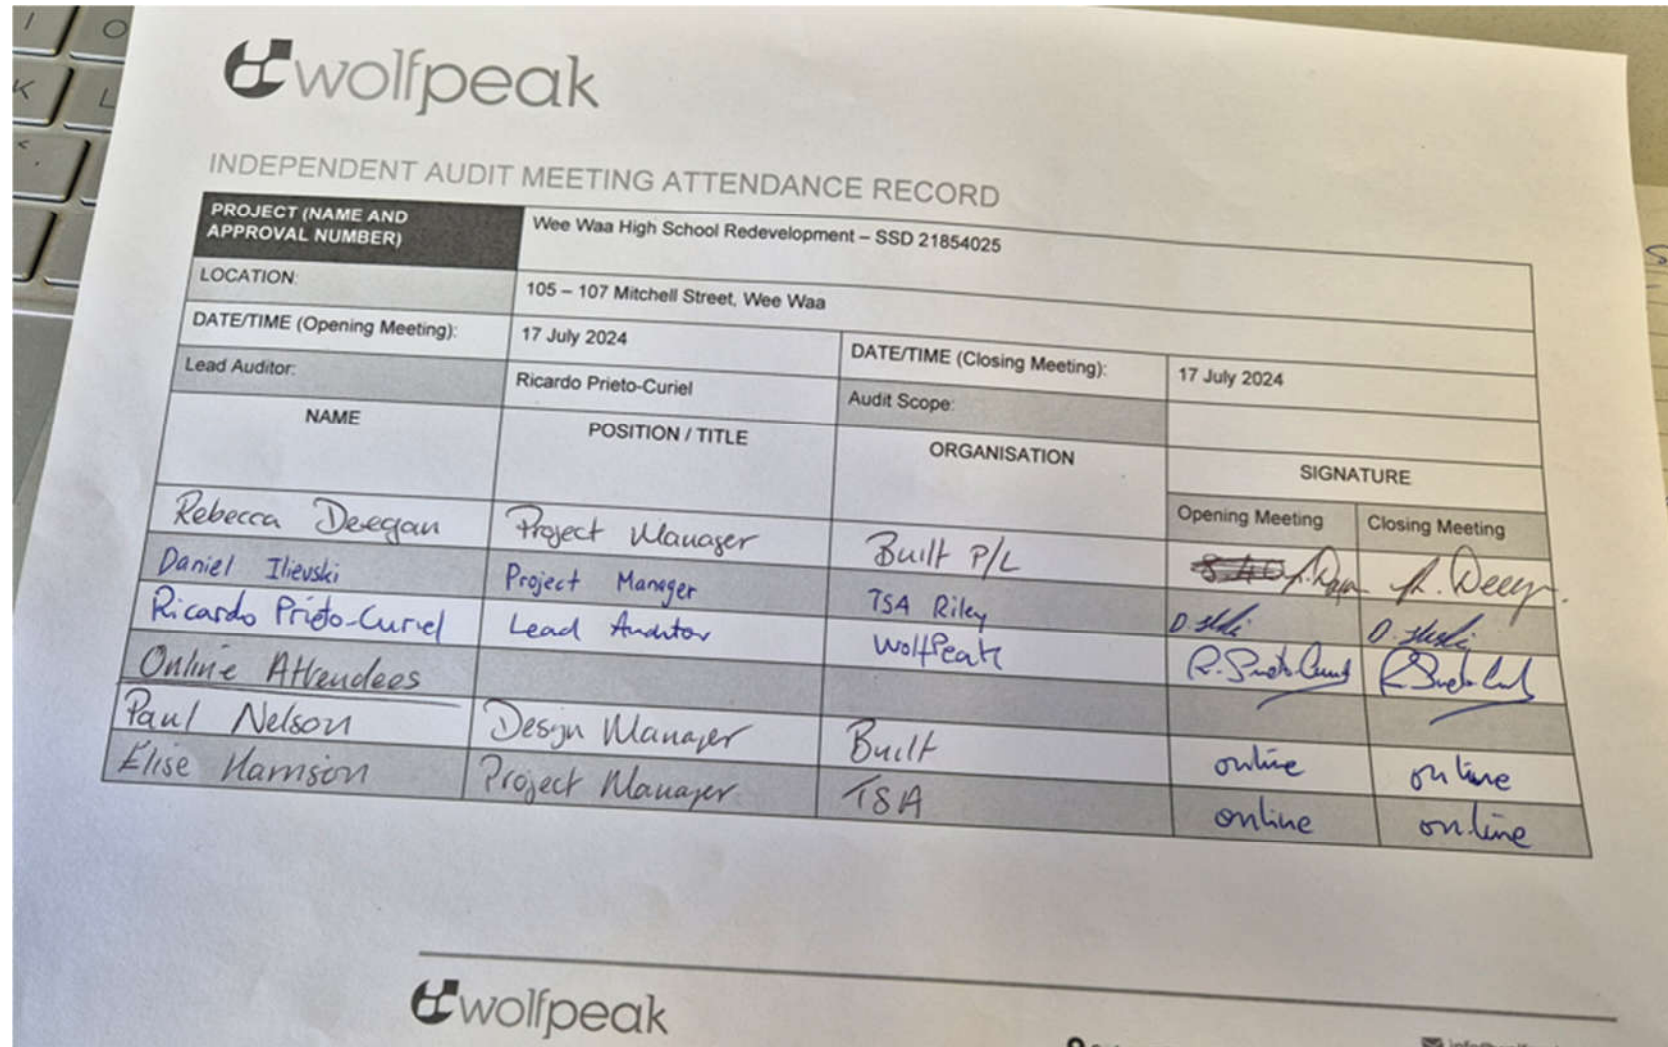 wolfpeak
INDEPENDENT AUDIT MEETING ATTENDANCE RECORD
PROJECT (NAME AND APPROVAL NUMBER) Wee Waa High School Redevelopment – SSD 21854025
LOCATION: 105 – 107 Mitchell Street, Wee Waa
DATE/TIME (Opening Meeting): 17 July 2024 DATE/TIME (Closing Meeting): 17 July 2024
Lead Auditor: Ricardo Prieto-Curiel Audit Scope:
NAME POSITION / TITLE ORGANISATION SIGNATURE
Opening Meeting Closing Meeting
Rebecca Deegan Project Manager Built P/L
Daniel Ilievski Project Manager TSA Riley
Ricardo Prieto-Curiel Lead Auditor WolfPeak
Online Attendees
Paul Nelson Design Manager Built online online
Elise Harrison Project Manager TSA online online
wolfpeak